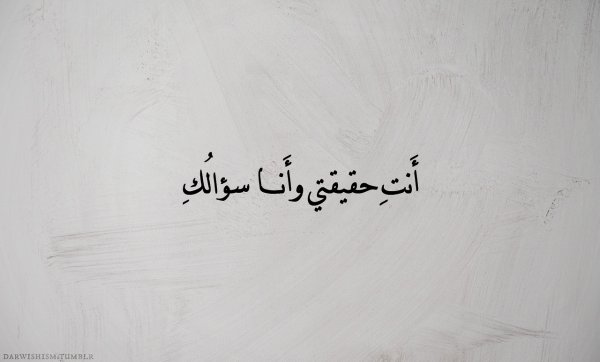 أَنتِ حقيقتي وأَنا سؤالُكِ
DARWISHISM.TUMBLR